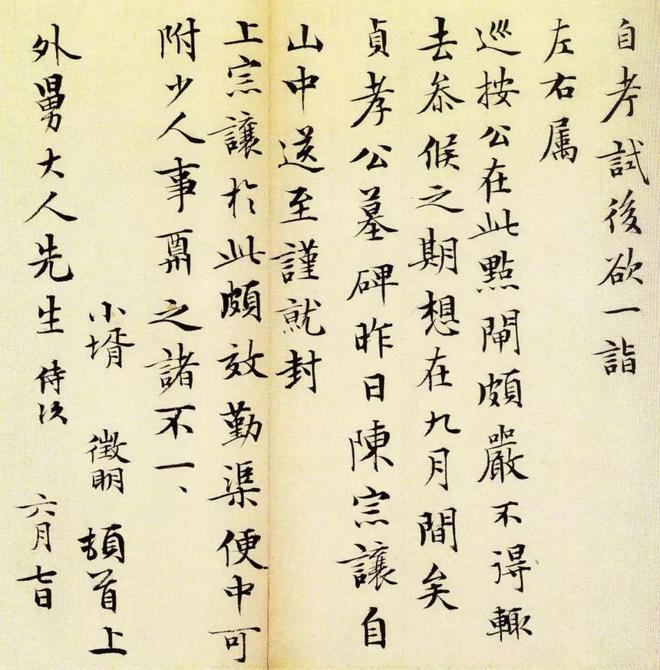 自考試後欲一詣
左右属
巡按公在此點閘頗嚴不得輙
去叅候之期想在九月間矣
貞孝公墓碑昨日陳宗讓自
山中送至謹就封
上宗讓於此頗效勤渠便中可
附少人事
之諸不一、
小壻 徵明 頓首上
外舅大人先生 侍次
六月七日